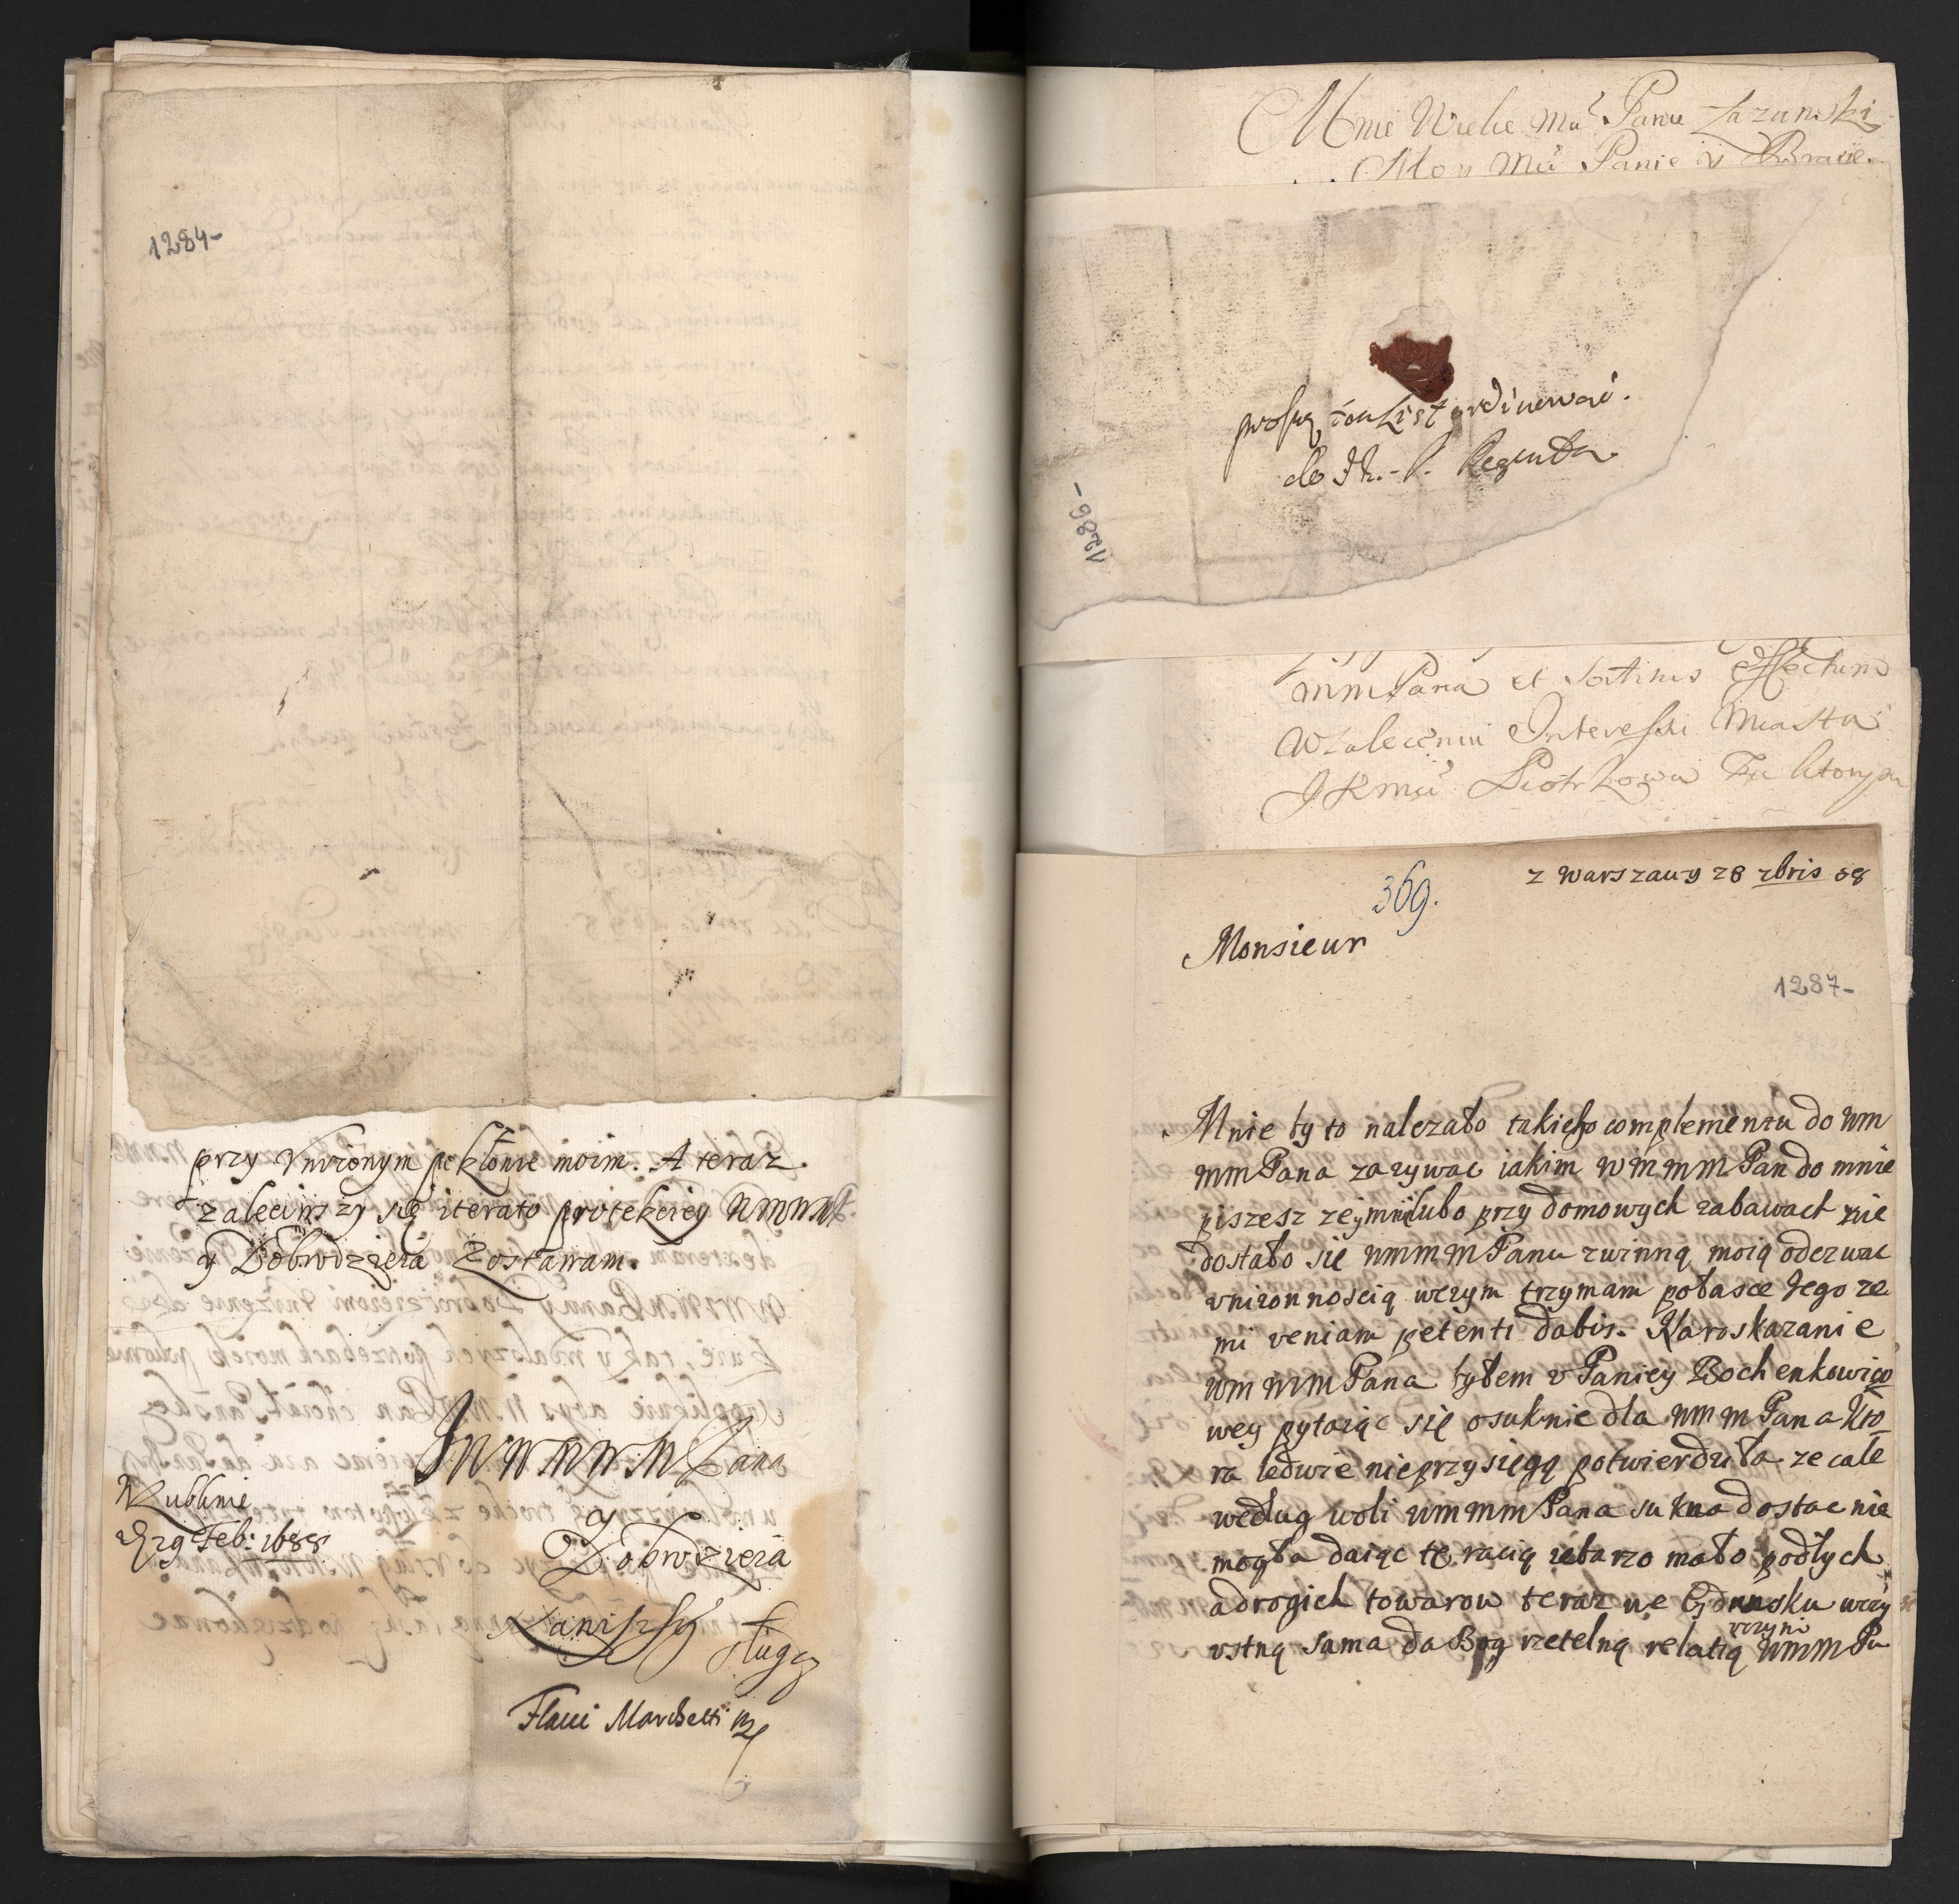 1284-
przy Vniżonym pokłonie moim. A teraz
zaleciwszy się iterato protekciey WMMM
y Dobrodzieia Zostawam.
WMMM Pana
y
Dobrodzieia
W Lublinie
29 Feb: 1688
Naniższy sługa
Marchetti mp
Mnie Wielce Mći Panie
Moy Mći Panie y Bracie
proszę ten List ordinować.
do Jh.-P. Regenta
1286-
MM Pana et sortitus effectum
W zaleceniu Interessu Miasta
JKMci Piotrkowa Za ktorym
z Warszawy 28 zbris 88
369.
Monsieur
1287-
Mnie by to należało takiego complementu do WM
MM Pana zazywac iakim WMMM Pan do mnie
piszesz ze mi lubo przy domowych zabawach nie
dostało sie WMMM Panu zwinną moią odezwac
vnizonnoscią wczym trzymam połasce Jego ze
mi veniam petenti dabis. Naroskazanie
WM MM Pana byłem v Paniey Bochenkowico
wey pytaiąc się osuknie dla WMM Pana kto
ra ledwie nieprzysięgą potwierdziła ze cale
według woli WMMM Pana sukna dostac nie
mogła daiąc tę racią izbarzo mało podłych
adrogich towarow teraz we Gdansku wczy
vstną sama da Bog rzetelną relatią vczyni WMM Pa